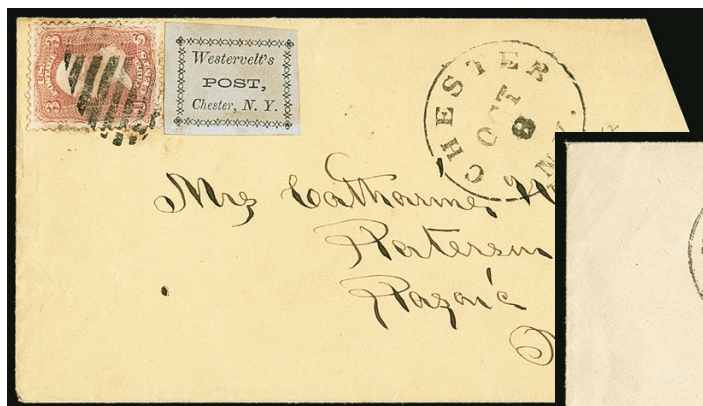 3 3
Westervelt's
POST,
Chester, N. Y.
CHESTER
OCT
8
N.Y.
Mrs Catharine
Paterson
Pasaic